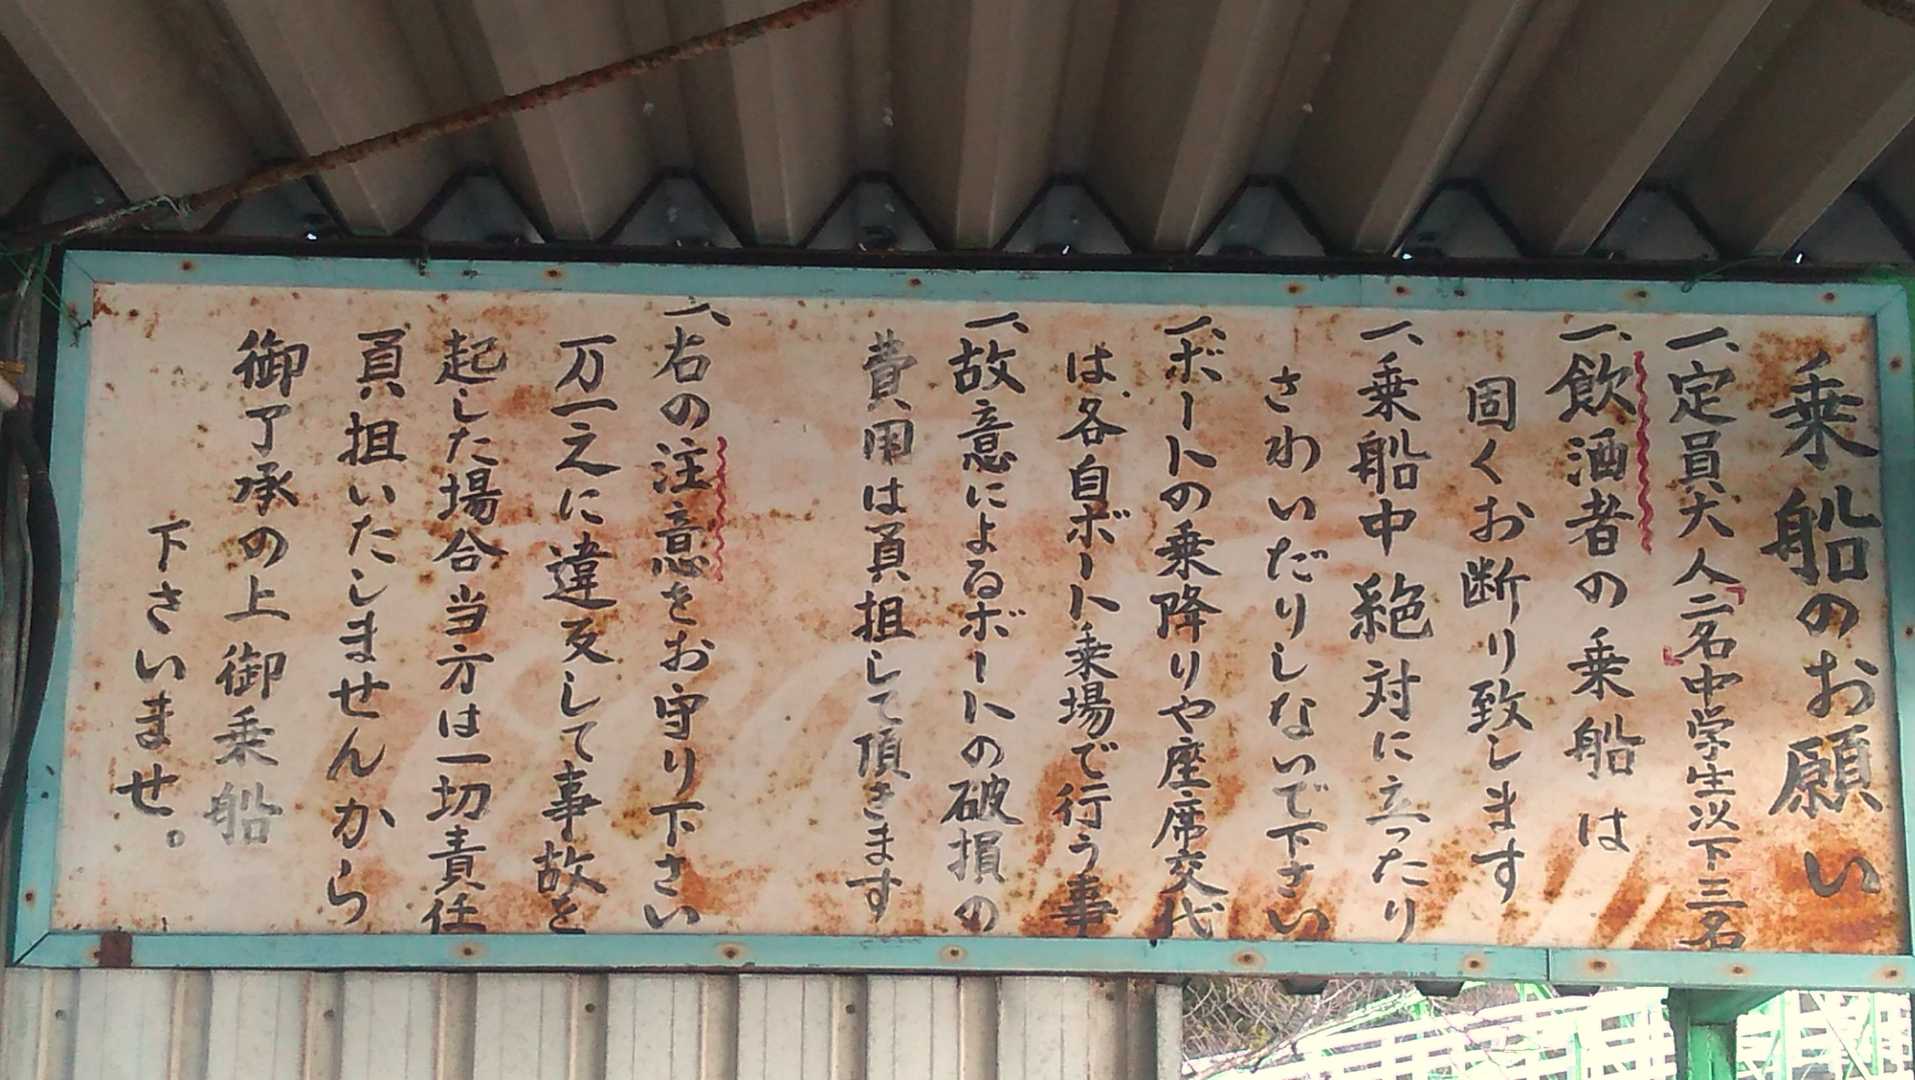 乗船のお願い
一、定員大人「二名」中学生以下三名
一、飲酒者の乗船は
固くお断り致します
一、乗船中絶対に立ったり
さわいだりしないで下さい
一、ボートの乗降りや座席交代
は、各自ボート乗場で行う事
一、故意によるボートの破損の
費用は負担して頂きます
一、右の注意をお守り下さい
万一之に違反して事故を
起した場合当方は一切責任
負担いたしませんから
御了承の上御乗船
下さいませ。